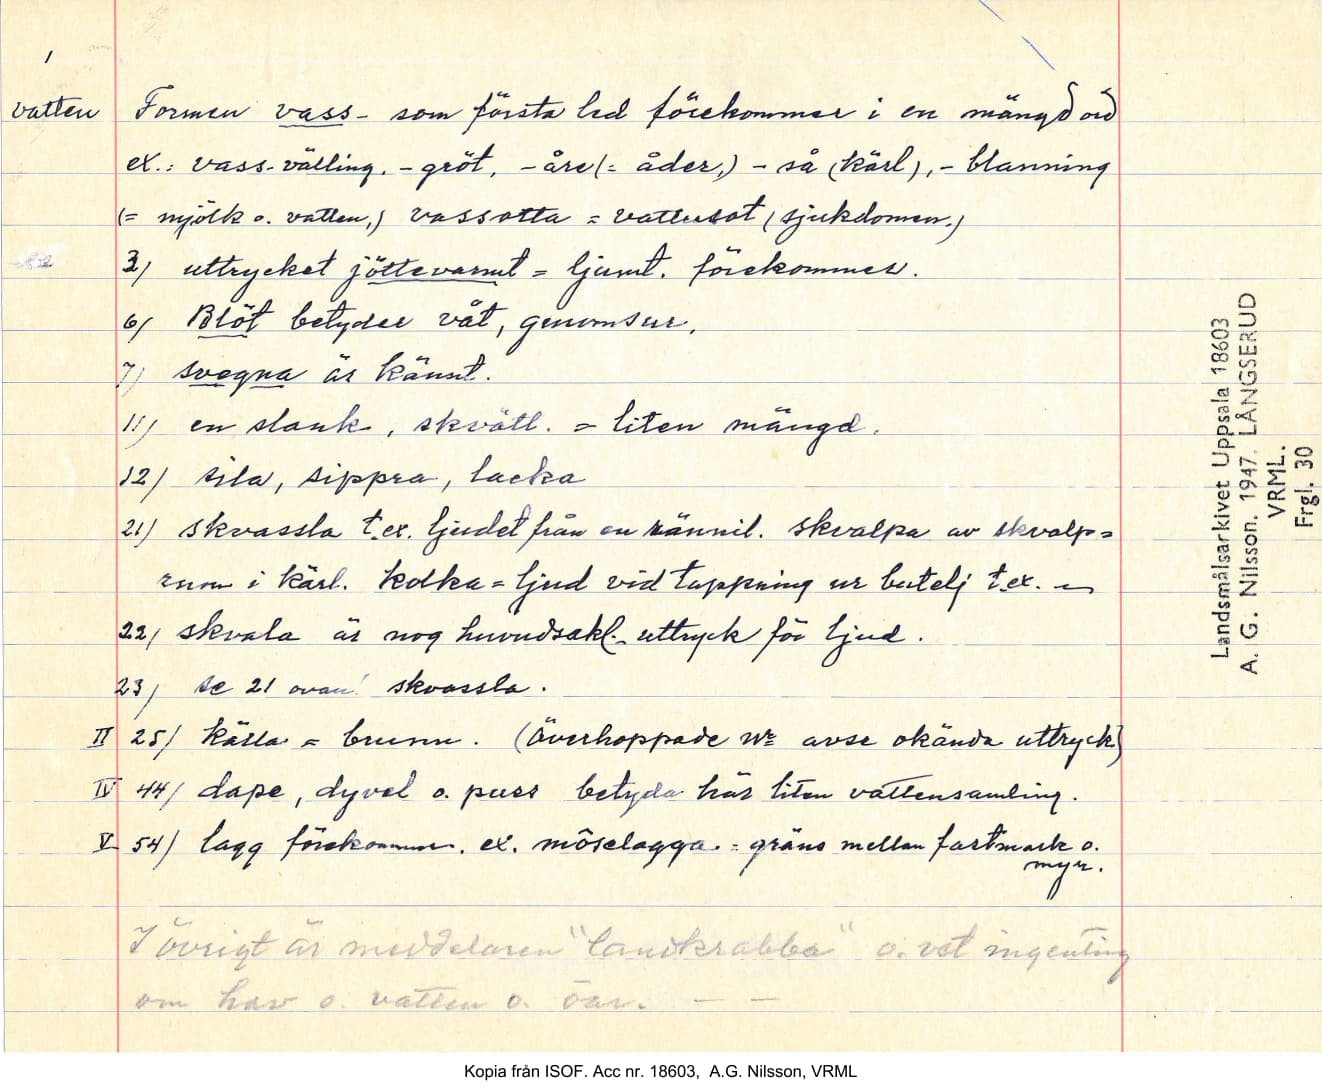 1
vatten Formen vass- som första led förekommer i en mängd ord
ex.: vass-välling. -gröt, -åre (= åder,) -så (kärl), -blanning
(= mjölk o. vatten,) vassotta = vattusot (sjukdomen.)
3) uttrycket jöttevarmt = ljumt. förekommer.
6) Blöt betyder våt, genomsur.
7) svegna är kännt.
11) en slank, skvätt. = liten mängd.
12) sila, sippra, lacka
21) skvassla t.ex. ljudet från en rännil. skvalpa av skvalp=
rum i kärl. kolka = ljud vid tappning ur butelj t.ex. –
22) skvala är nog huvudsakl. uttryck för ljud.
23) se 21 ovan! skvassla.
II 25) källa = brunn. (Överhoppade Nr avse okända uttryck)
IV 44) dape, dyvel o. puss betyda här liten vattensamling.
V 54) lagg förekommer. ex. môselagga = gräns mellan fastmark o.
myr.
I övrigt är meddelaren "landkrabba" o. vet ingenting
om hav o. vatten o. öar. — —
Landsmålsarkivet Uppsala 18603
A. G. Nilsson. 1947. LÅNGSERUD
VRML.
Frgl. 30
Kopia från ISOF. Acc nr. 18603, A.G. Nilsson, VRML